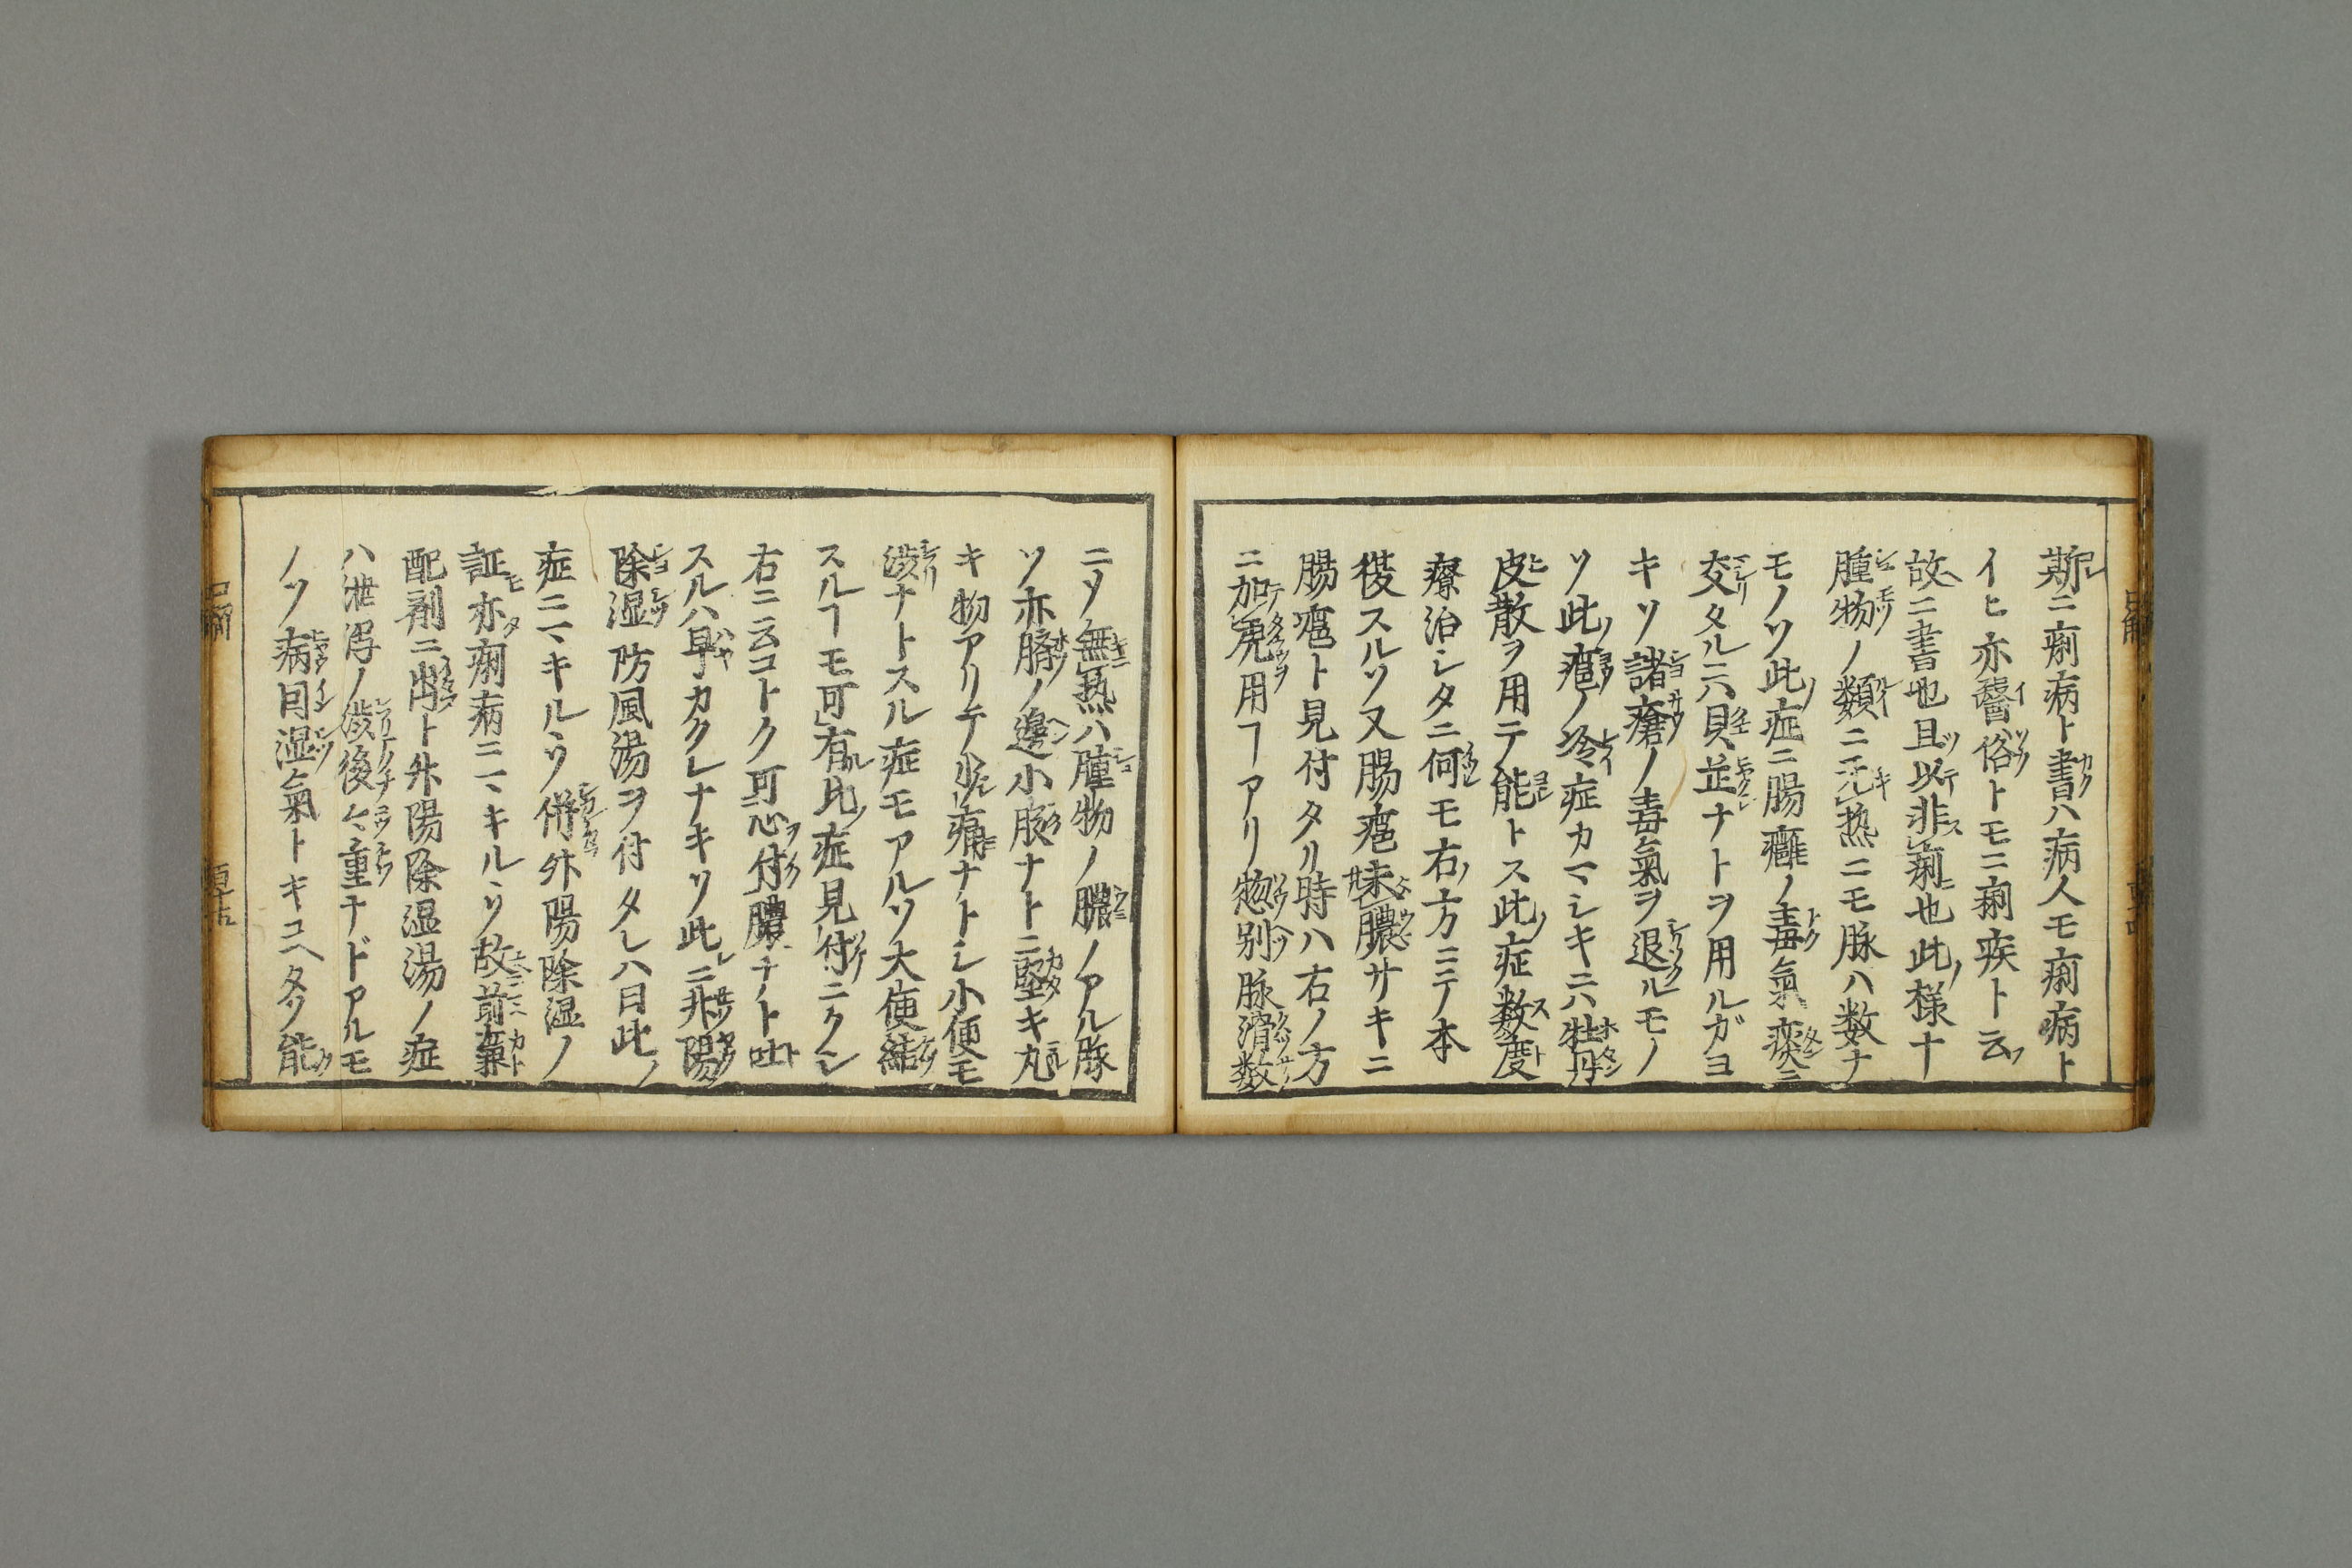 斯ニ痢病ト書ハ病人モ痢病ト
イヒ亦醫俗トモニ痢疾ト云
故ニ書也且以非痢也此様ナ
腫物ノ類ニ无熱ニモ脉ハ数ナ
モノソ此症ニ腸癰ノ毒氣癀ニ
交タルニハ貝並ナトヲ用ルガヨ
キソ諸瘡ノ毒氣ヲ退ルモノ
ソ此瘡ノ冷症カマシキニハ牡丹
皮散ヲ用テ能トス此症数度
療治シタニ何モ右ノ方ニテ本
復スルソ又腸瘡未膿サキニ
腸瘡ト見付タル時ハ右ノ方
ニ加テ用ヿアリ惣別脉滑数
ニメ無熱ハ腫物ノ膿ノアル豚
ソ亦臍ノ邉小腹ナトニ堅キ丸
キ物アリテ少痛ナトシ小便モ
澁ナトスル症モアルソ大便結
スルヿモ可有此症見付ニクシ
右ニ云コトク可心付膿ナト吐
スルハ早カクレナキソ此ニ非陽
除湿防風湯ヲ付タレハ曰此ノ
症ニマキルソ併外陽除湿ノ
証亦痢病ニマキルソ故前兼
配剤ニ出ト外陽除湿湯ノ症
ハ泄泻ノ澁後ヘ重ナドアルモ
ノソ病因湿氣トキコヘタソ能